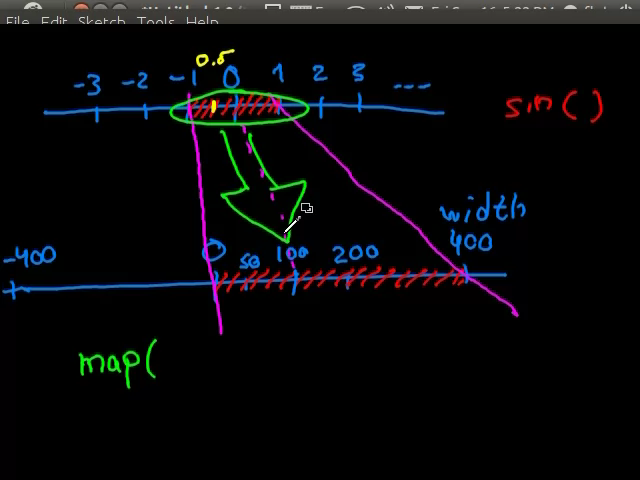 File Edit Sketch Tools Help
0.5
-3 -2 -1 0 1 2 3 ---
sin()
width
-400 0 50 100 200 400
map(